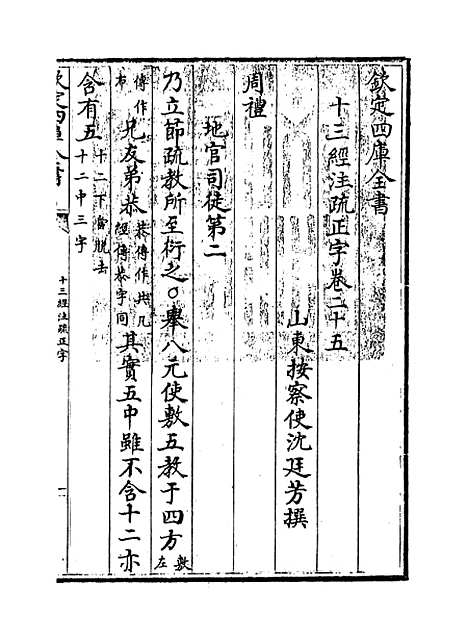 欽定四庫全書
十三經注疏正字卷二十五
山東按察使沈廷芳撰
周禮
地官司徒第二
乃立節疏教所至衍之○舉八元使敷五教于四方敷左
傳作布兄友弟恭恭傳作共凡經傳恭字同其實五中雖不含十二亦
含有五十二下當脱去十二中三字
十三經注疏正字
一